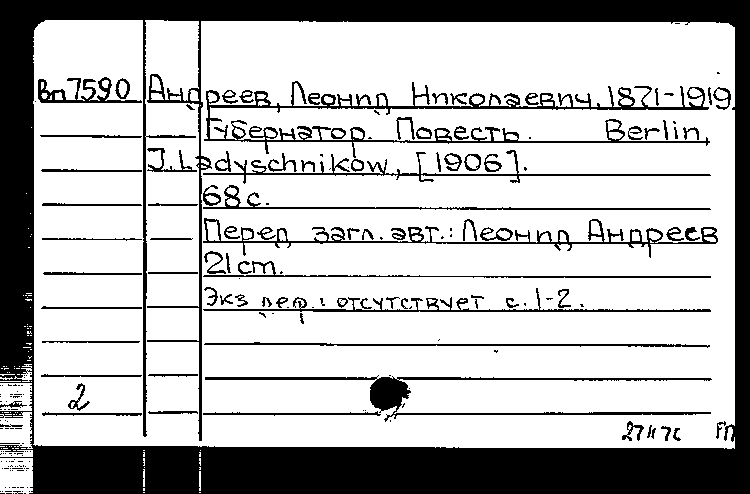 Вп7590 Андреев, Леонид Николаевич. 1871-1919.
Губернатор. Повесть. Berlin,
J. Ladyschnikow, [1906].
68 с.
Перед загл. авт.: Леонид Андреев
21 cm.
Экз деф.: отсутствует с. 1-2.
2